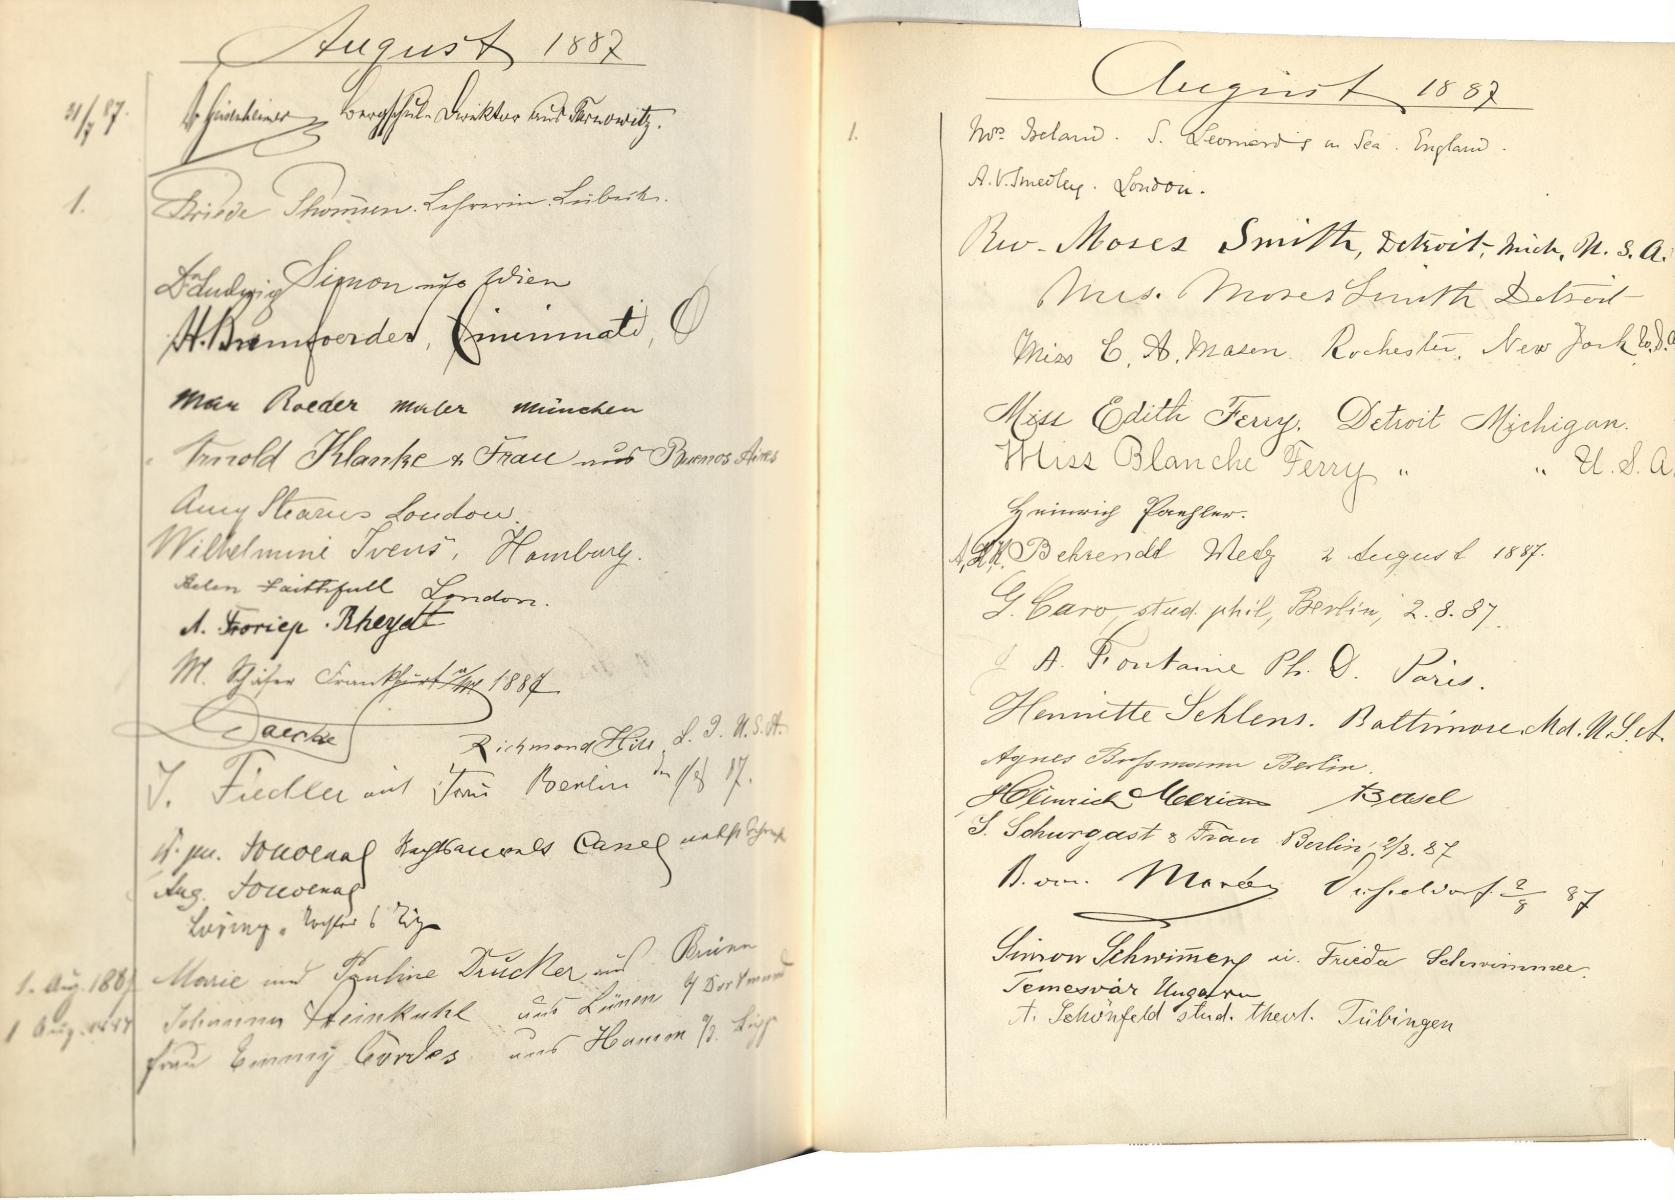 August 1887
31/7 87. Dr Geisenheimer Bergschul-Direktor aus Tarnowitz.
1. Friede Thomsen. Lehrerin. Lübeck.
Dr Ludwig Simon aus Wien
H. Bremfoerder, Cincinnati, O
Max Roeder Maler München
Arnold Klanke & Frau aus Buenos Aires
Amy Stearns London
Wilhelmine Ivens, Hamburg.
Helen Faithfull London.
A. Froriep. Rheydt
M. Schäfer Frankfurt a/M 1887
Daecke Richmond Hill, L. I. U.S.A.
J. Fiedler mit Frau Berlin den 1/8 87.
Rechtsanwalt Cassel nebst
Aug.
Marie und Pauline Drucker aus Brünn
1. Aug. 1887 Johanna Steinkuhl aus Lünen b/ Dortmund
1 Aug. 1887 Frau Emmy Cordes aus Hamm a/d. Lippe
August 1887
1. Wm Ireland. S. Leonards on Sea. England.
A. V. Smedley. London.
Rev. Moses Smith, Detroit, Mich, U. S. A.
Mrs. Moses Smith Detroit
Miss C. A. Mason Rochester, New York U.S.A
Miss Edith Ferry. Detroit Michigan.
Miss Blanche Ferry " " U. S. A.
Heinrich Paehler.
Behrendt Metz 2 August 1887.
G. Caro, stud. phil, Berlin, 2. 8. 87.
A. Fontaine Ph. D. Paris.
Henriette Sehlens. Baltimore. Md. U.S.A.
Agnes Bussmann Berlin.
Heinrich Merian Basel
S. Schurgast & Frau Berlin 2/8. 87
B. von Düsseldorf. 2/8 87
Simon Schwimmer u. Frieda Schwimmer.
Temesvár Ungarn
A. Schönfeld stud. theol. Tübingen